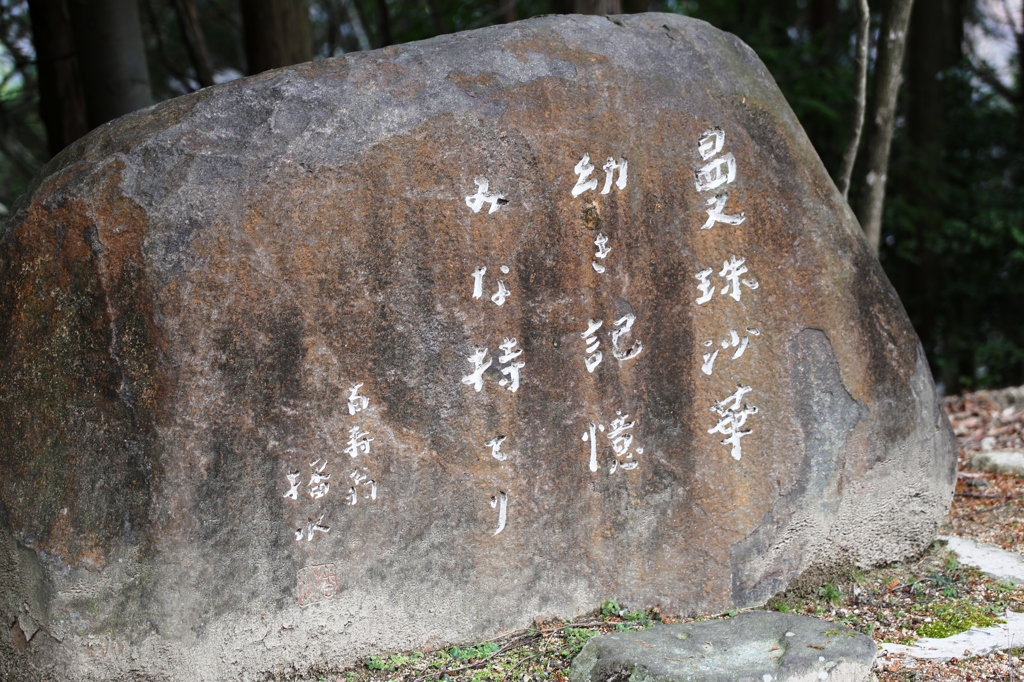 曼珠沙華
幼き記憶
みな持てり
百寿翁
播水